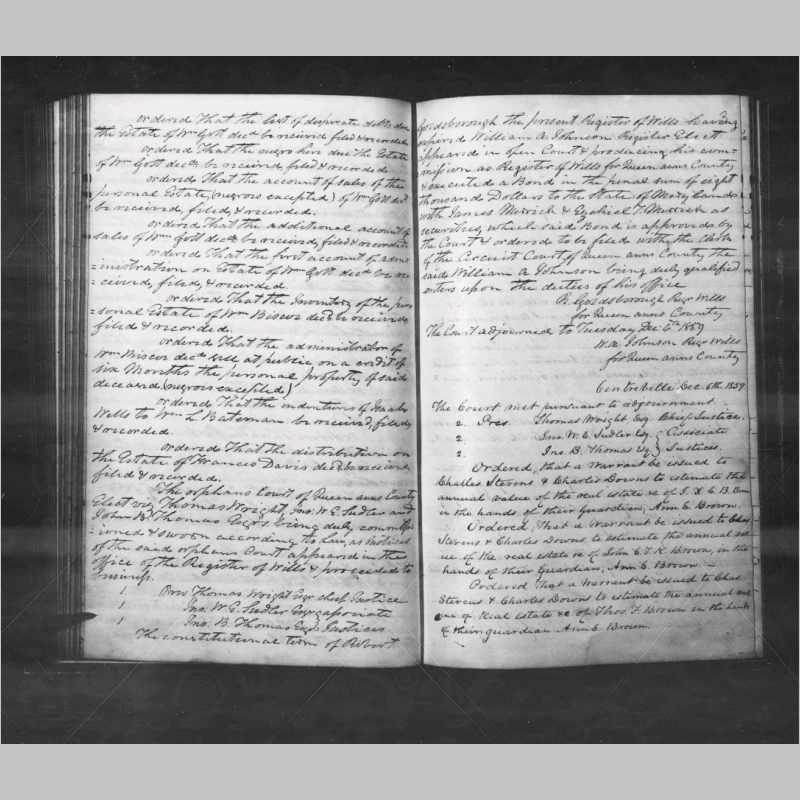 ordered That the list of desperate debts due
the Estate of Wm Gott decd be received filed & recorded
ordered That the negro hire due the Estate
of Wm Gott decd be received, filed & recorded
ordered That the account of sales of the
personal Estate, (negroes excepted) of Wm Gott decd
be received, filed, & recorded.
ordered That the additional account of
sales of Wm Gott decd be received, filed & recorded
ordered That the first account of admi
=nistration on Estate of Wm Gott decd be re
=ceived, filed & recorded.
ordered That the Inventory of the per
=sonal Estate of Wm Biscoe decd be received
filed & recorded.
ordered That the administrator of
Wm Biscoe decd sell at public on a credit of
six Months the personal property of said
deceased, (negroes excepted)
ordered That the indenture of Isaac
Wells to Wm L Bateman be received, filed,
& recorded.
ordered That the distribution on
the Estate of Francis Davis decd be received
filed & recorded.
The orphans Court of Queen anns County
Elect viz Thomas Wright, Jno. W. E. Sudler and
John B. Thomas Esqrs being duly commiss
ioned & sworn according to Law, as Justices
of the said orphans Court appeared in the
office of the Register of Wills & proceeded to
business.
1 Pres Thomas Wright Esqr chief Justice
1 Jno. W. E. Sudler Esqr associate
1 Jno. B. Thomas Esqr Justices
The constitutional term of Robert
Goldsborough the present Register of Wills having
expired William A. Johnson Register Elect
appeared in open Court & producing his com-
mission as Register of Wills for Queen anns County
& executed a Bond in the penal sum of eight
thousand Dollars to the State of Maryland
with James Merrick & Ezekiel T. Merrick as
securities, which said Bond is approved by
the Court & ordered to be filed with the Clerk
of the Circuit Court of Queen anns County the
said William A Johnson being duly qualified
enters upon the duties of his office
R. Goldsborough Regr Wills
for Queen anns County
The Court adjourned to Tuesday Dec 6th 1859
W. A. Johnson Regr Wills
for Queen anns County
Centreville Dec. 6th 1859
The Court met pursuant to adjournment.
2. Pres. Thomas Wright Esq. Chief Justice.
2. Jno. W. E. Sudler Esq. } Associate
2. Jno. B. Thomas Esq. } Justices.
Ordered, that a warrant be issued to
Charles Stevens & Charles Downs to estimate the
annual value of the real estate &c of
in the hands of their Guardian, Ann E. Brown.
Ordered that a warrant be issued to Chas
Stevens & Charles Downs to estimate the annual val
ue of the real estate &c of John E. T. R. Brown, in the
hands of their Guardian, Ann E. Brown.
Ordered that a warrant be issued to Chas
Stevens & Charles Downs to estimate the annual val
ue of Real Estate &c of Thos. F. Brown in the hands
of their guardian Ann E. Brown.